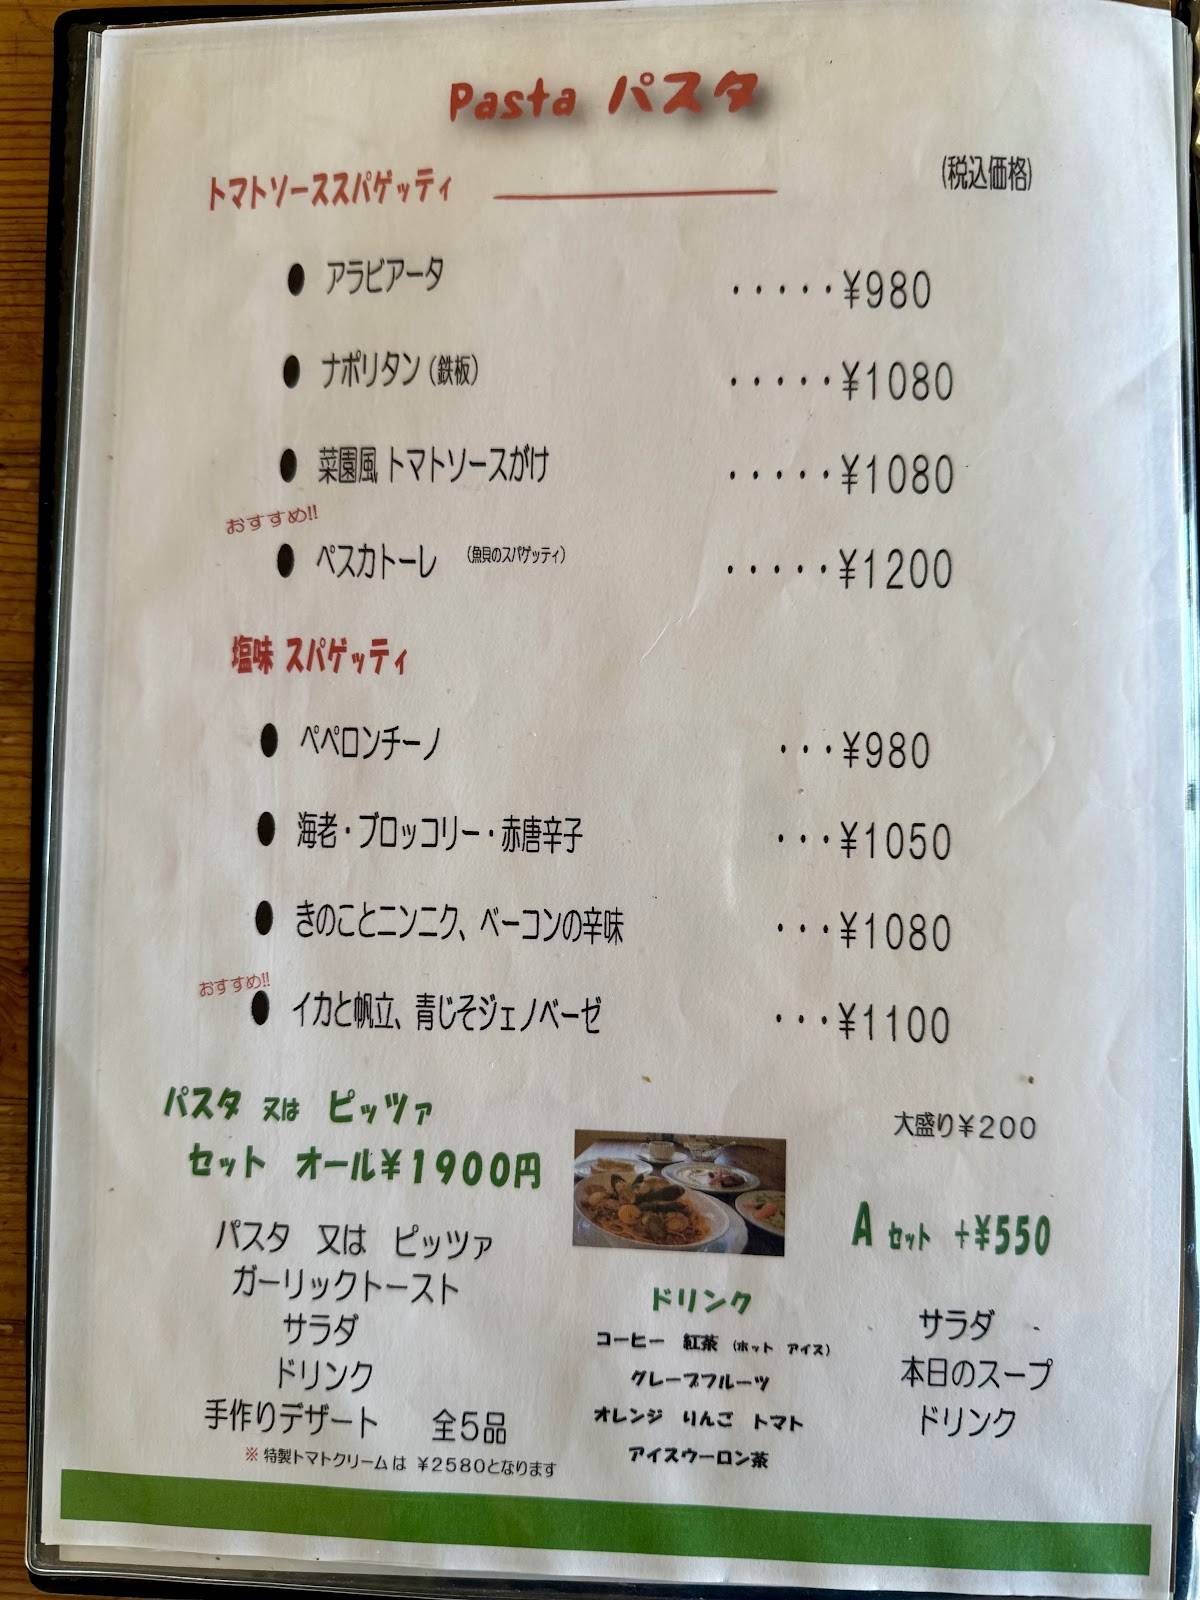 Pasta パスタ
(税込価格)
トマトソーススパゲッティ
● アラビアータ ・・・・・¥980
● ナポリタン（鉄板） ・・・・・¥1080
● 菜園風 トマトソースがけ ・・・・・¥1080
おすすめ!!
● ペスカトーレ （魚貝のスパゲッティ） ・・・・・¥1200
塩味 スパゲッティ
● ペペロンチーノ ・・・¥980
● 海老・ブロッコリー・赤唐辛子 ・・・¥1050
● きのことニンニク、ベーコンの辛味 ・・・¥1080
おすすめ!!
● イカと帆立、青じそジェノベーゼ ・・・¥1100
パスタ 又は ピッツァ
セット オール¥1900円
パスタ 又は ピッツァ
ガーリックトースト
サラダ
ドリンク
手作りデザート 全5品
※ 特製トマトクリームは ¥2580となります
ドリンク
コーヒー 紅茶 (ホット アイス)
グレープフルーツ
オレンジ りんご トマト
アイスウーロン茶
大盛り¥200
A セット +¥550
サラダ
本日のスープ
ドリンク